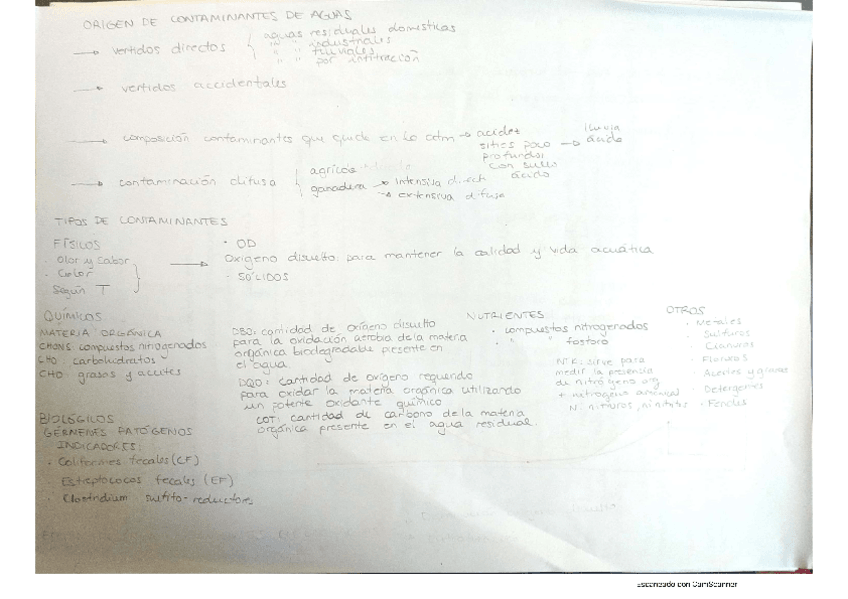 ORIGEN DE CONTAMINANTES DE AGUAS
→ vertidos directos { aguas residuales domésticas
" " industriales
" " fluviales
" " por infiltración
→ vertidos accidentales
→ composición contaminantes que quede en la atm → acidez
sitios poco → lluvia ácida
profundos
con suelo
ácido
→ contaminación difusa { agrícola
ganadera → intensiva direct
→ extensiva difusa
TIPOS DE CONTAMINANTES
FÍSICOS
· Olor y sabor
· Color
· Según T
→
· OD
Oxígeno disuelto: para mantener la calidad y vida acuática
· SÓLIDOS
QUÍMICOS
MATERIA ORGÁNICA
CHONS compuestos nitrogenados
CHO carbohidratos
CHO grasas y aceites
DBO: cantidad de oxígeno disuelto
para la oxidación aerobia de la materia
orgánica biodegradable presente en
el agua
DQO: cantidad de oxígeno requerido
para oxidar la materia orgánica utilizando
un potente oxidante químico
COT: cantidad de carbono de la materia
orgánica presente en el agua residual.
NUTRIENTES
· compuestos nitrogenados
· " " fosforo
sirve para
medir la presencia
de nitrógeno org
+ nitrogeno
OTROS
· Metales
· Sulfuros
· Cianuros
· Fluoruros
· Aceites y grasas
· Detergentes
· Fenoles
BIOLÓGICOS
GÉRMENES PATÓGENOS
INDICADORES:
· Coliformes fecales (CF)
· Estreptococos fecales (EF)
· Clostridium sulfito-reductores
Escaneado con CamScanner